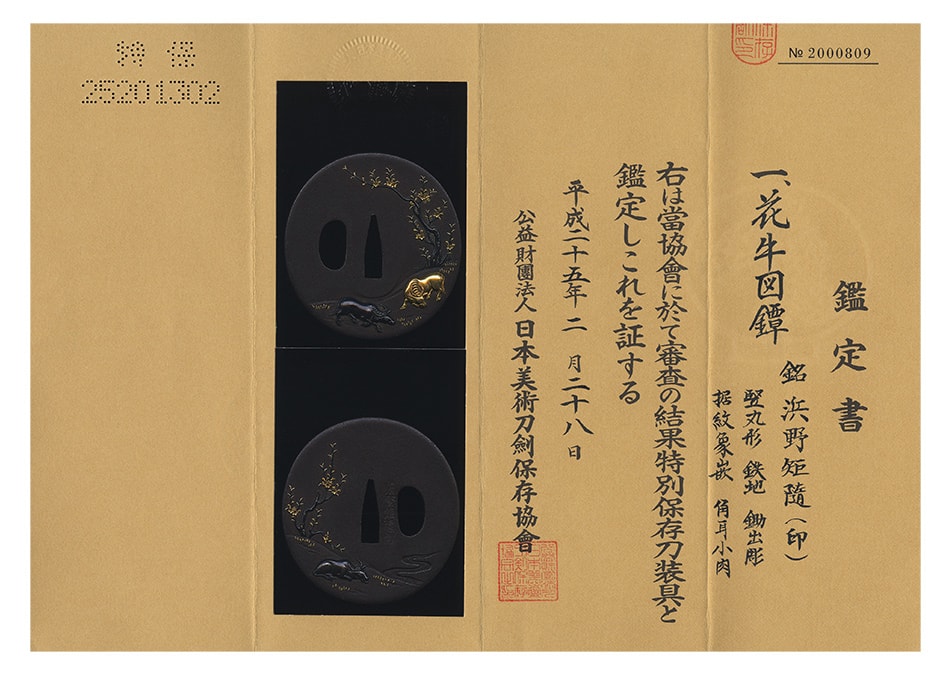 鑑定書
一、花牛図鐔
銘 浜野矩随（印）
竪丸形 鉄地 鋤出彫
据紋象嵌 角耳小肉
右は當協會に於て審査の結果特別保存刀装具と
鑑定しこれを証する
平成二十五年二月二十八日
公益財團法人日本美術刀劍保存協會
№ 2000809
特保
25201302